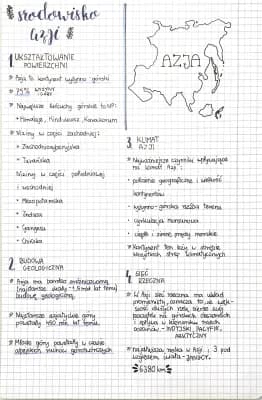 środowisko
azji
1. UKSZTAŁTOWANIE
POWIERZCHNI
Azja to kontynent wyżynno-górski
75%
Największe łańcuchy górskie to np:
• Himalaje, Hindukusz, Karakorum
Niziny w części zachodniej:
• Zachodniosyberyjska
• Turańska
Niziny w części południowej
i wschodniej
• Mezopotamska
• Indusu
• Gangesu
• Chińska
2. BUDOWA
GEOLOGICZNA
Azja ma bardzo
(najstarsze skały mld lat temu)
budowę geologiczną
Najstarsze azjatyckie góry
powstały 450 mln lat temu
Młode góry powstały w czasie
alpejskich ruchów górotwórczych
AZJA
3. KLIMAT
AZJI
Najważniejsze czynniki wpływające
na klimat Azji:
• położenie geograficzne i wielkość
kontynentów
• wyżynno-górska rzeźba terenu
• cyrkulacja monsunowa
• ciepłe i zimne prądy morskie
Kontynent ten leży w strefie
wszystkich stref klimatycznych
4. SIEĆ
RZECZNA
W Azji sieć rzeczna ma układ
promienisty, oznacza to, że więk-
szość dużych rzek bierze swój
początek na górskich obszarach
i spływa w kierunku trzech
oceanów - INDYJSKI, PACYFIK,
ARKTYCZNY
najdłuższa rzeka w Azji i 3 pod
względem świata - JANGCY
6380 km